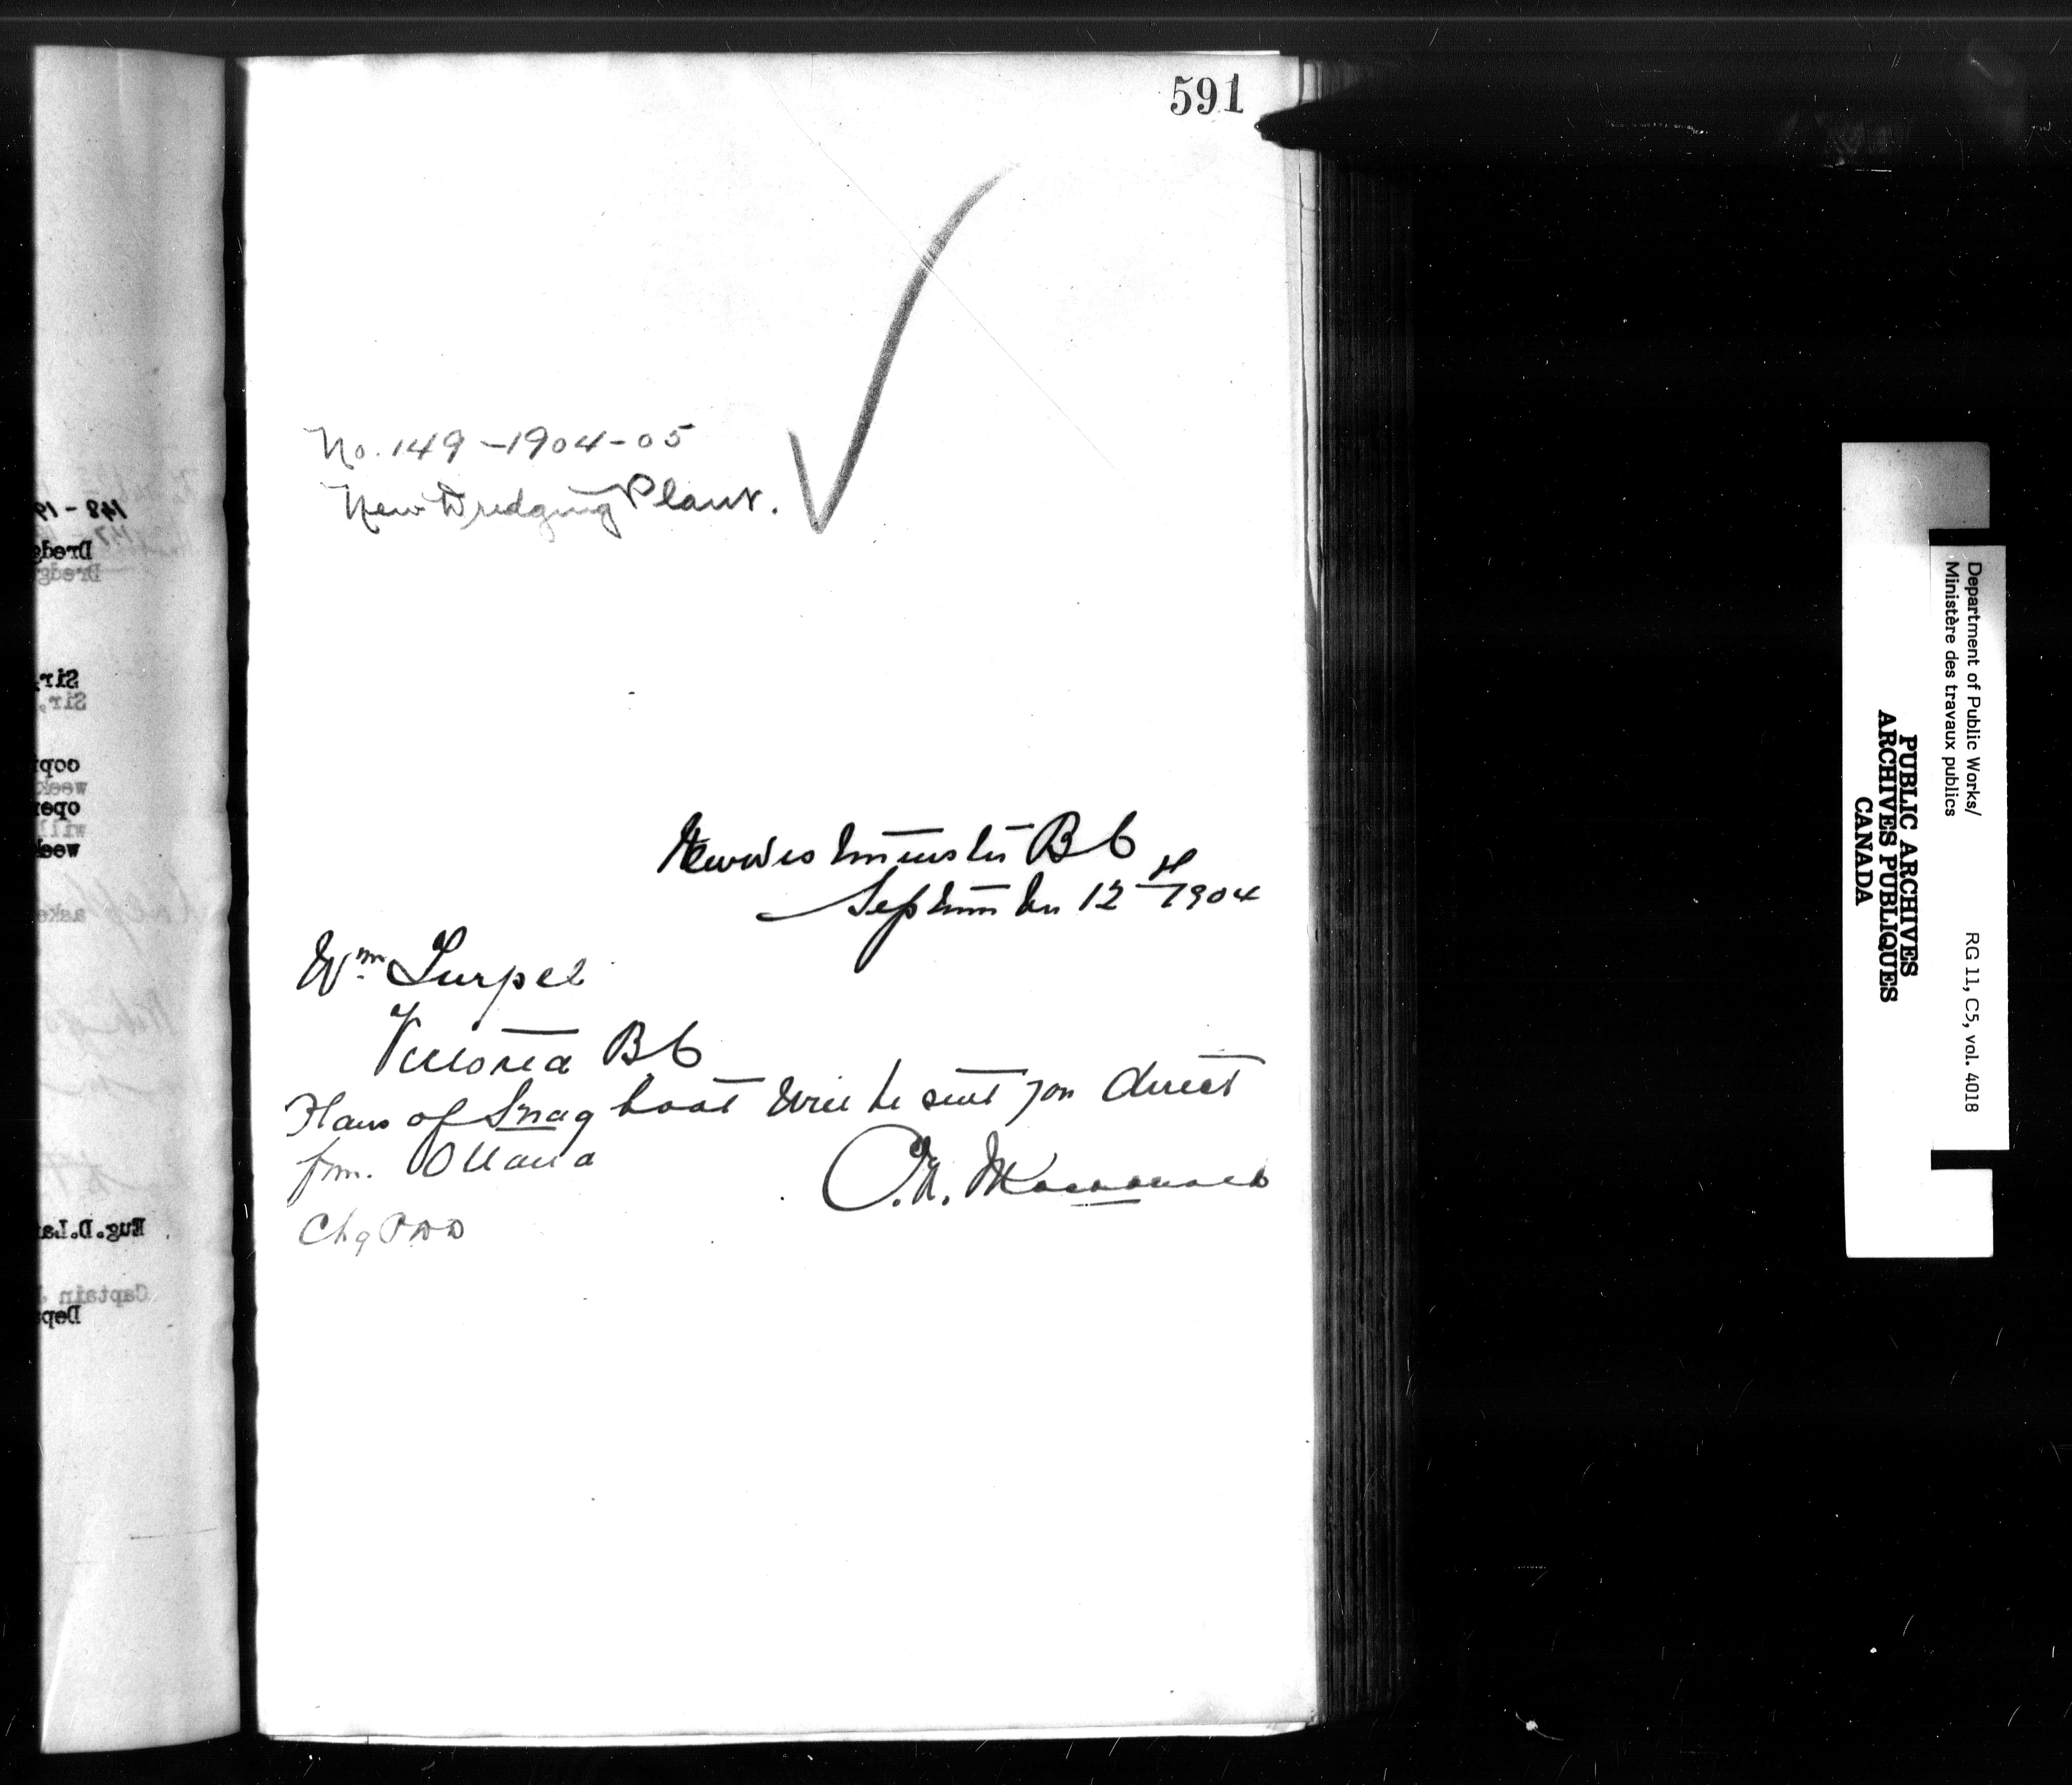 591
No. 149 - 1904-05
New Dredging Plant.
New Westminster B C
September 12th 1904
Wm Turpel
Victoria B C
Plans of Snag boat will be sent you direct
from Ottawa
Chg PWD
148 - 19
Dredg
Dredg
Sir,
Sir,
copi
week
oper
will
week
aske
Eug.D.La
Captain J
Depa
Department of Public Works/
Ministère des travaux publics
RG 11, C5, vol. 4018
PUBLIC ARCHIVES
ARCHIVES PUBLIQUES
CANADA